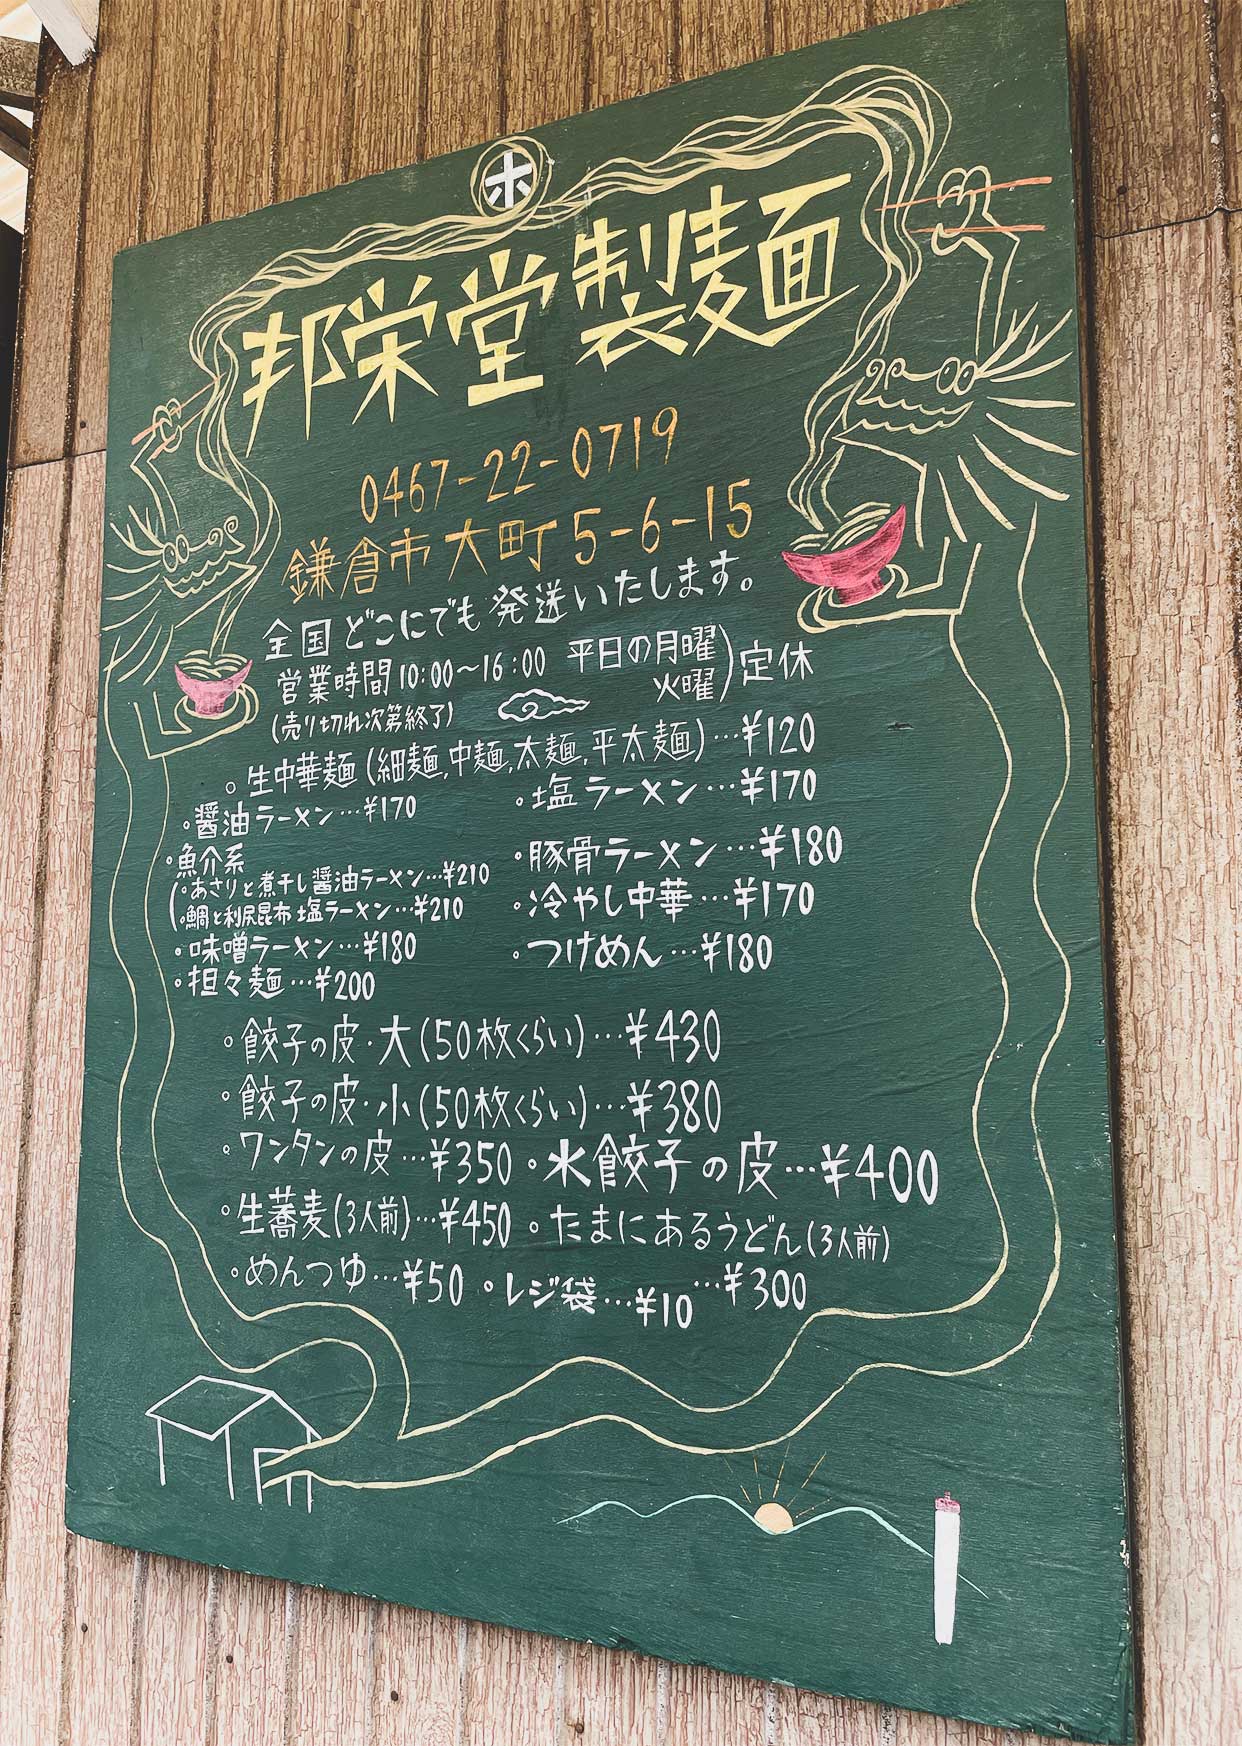 ホ
邦栄堂製麺
0467-22-0719
鎌倉市大町5-6-15
全国どこにでも発送いたします。
営業時間10:00～16:00 平日の月曜
火曜)定休
(売り切れ次第終了)
。生中華麺(細麺,中麺,太麺,平太麺)…¥120
。醤油ラーメン…¥170 。塩ラーメン…¥170
。魚介系
(。あさりと煮干し醤油ラーメン…¥210 。豚骨ラーメン…¥180
。鯛と利尻昆布塩ラーメン…¥210 。冷やし中華…¥170
。味噌ラーメン…¥180 。つけめん…¥180
。担々麺…¥200
。餃子の皮・大(50枚くらい)…¥430
。餃子の皮・小(50枚くらい)…¥380
。ワンタンの皮…¥350 。水餃子の皮…¥400
。生蕎麦(3人前)…¥450 。たまにあるうどん(3人前)
…¥300
。めんつゆ…¥50 。レジ袋…¥10